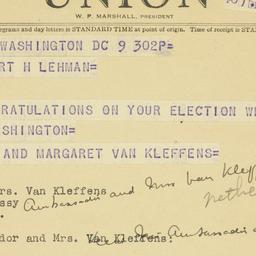 UNION
W. P. MARSHALL, PRESIDENT
egrams and day letters is STANDARD TIME at point of origin. Time of receipt is STA
WASHINGTON DC 9 302P=
RT H LEHMAN=
GRATULATIONS ON YOUR ELECTION W
SHINGTON=
AND MARGARET VAN KLEFFENS=
rs. Van Kleffens
ssy Ambassador and Mrs Van Kleff
nethe
dor and Mrs. Van Kleffens:
Ambassado